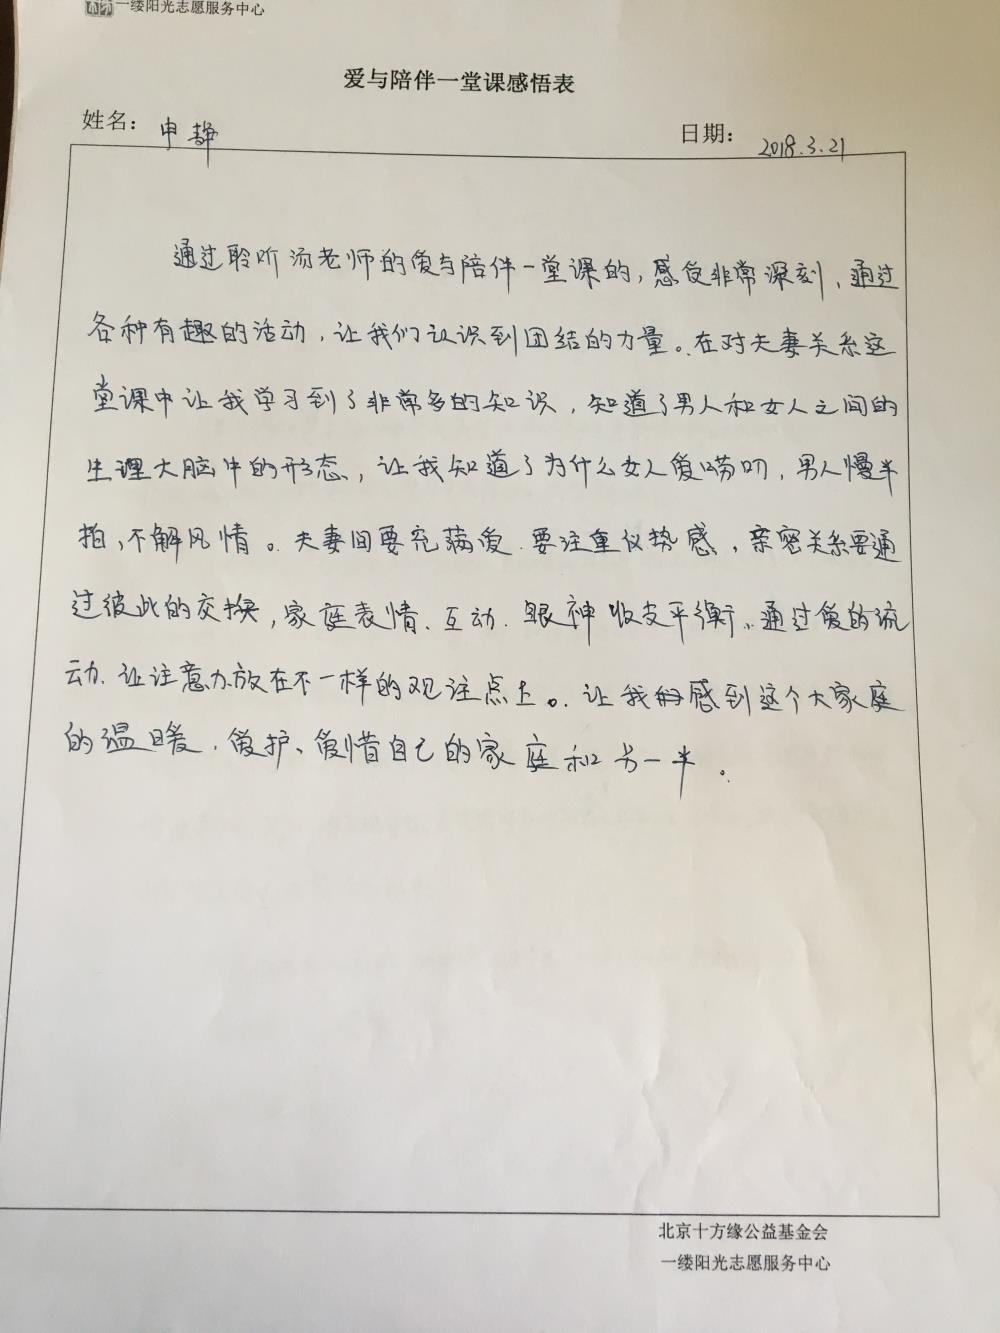 一缕阳光志愿服务中心
爱与陪伴一堂课感悟表
姓名：申静
日期：2018.3.21
通过聆听汤老师的爱与陪伴一堂课的，感受非常深刻，通过
各种有趣的活动，让我们认识到团结的力量。在对夫妻关系这
堂课中让我学习到了非常多的知识，知道了男人和女人之间的
生理大脑中的形态，让我知道了为什么女人爱唠叨，男人慢半
拍、不解风情。夫妻间要充满爱．要注重仪势感，亲密关系要通
过彼此的交换，家庭表情、互动、眼神收支平衡、通过爱的流
动、让注意力放在不一样的观注点上。让我感到这个大家庭
的温暖，爱护、爱惜自己的家庭和另一半。
北京十方缘公益基金会
一缕阳光志愿服务中心